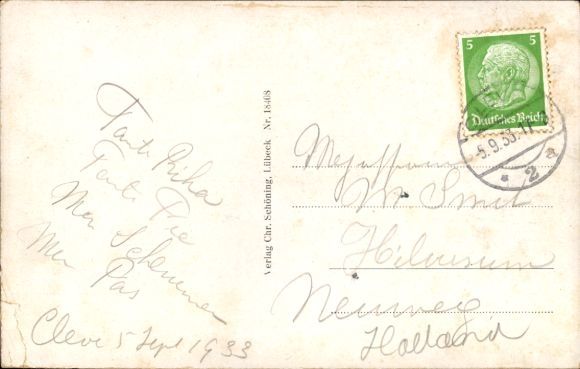 Tante Rika
Tante Pie
Mevr Schemmer
Mevr Pas
Cleve 5 Sept 1933
Verlag Chr. Schöning, Lübeck Nr. 18468
5 5
Deutsches Reich
5.9.33.
* 2 a
Smit
Hilversum
Neuweg
Holland